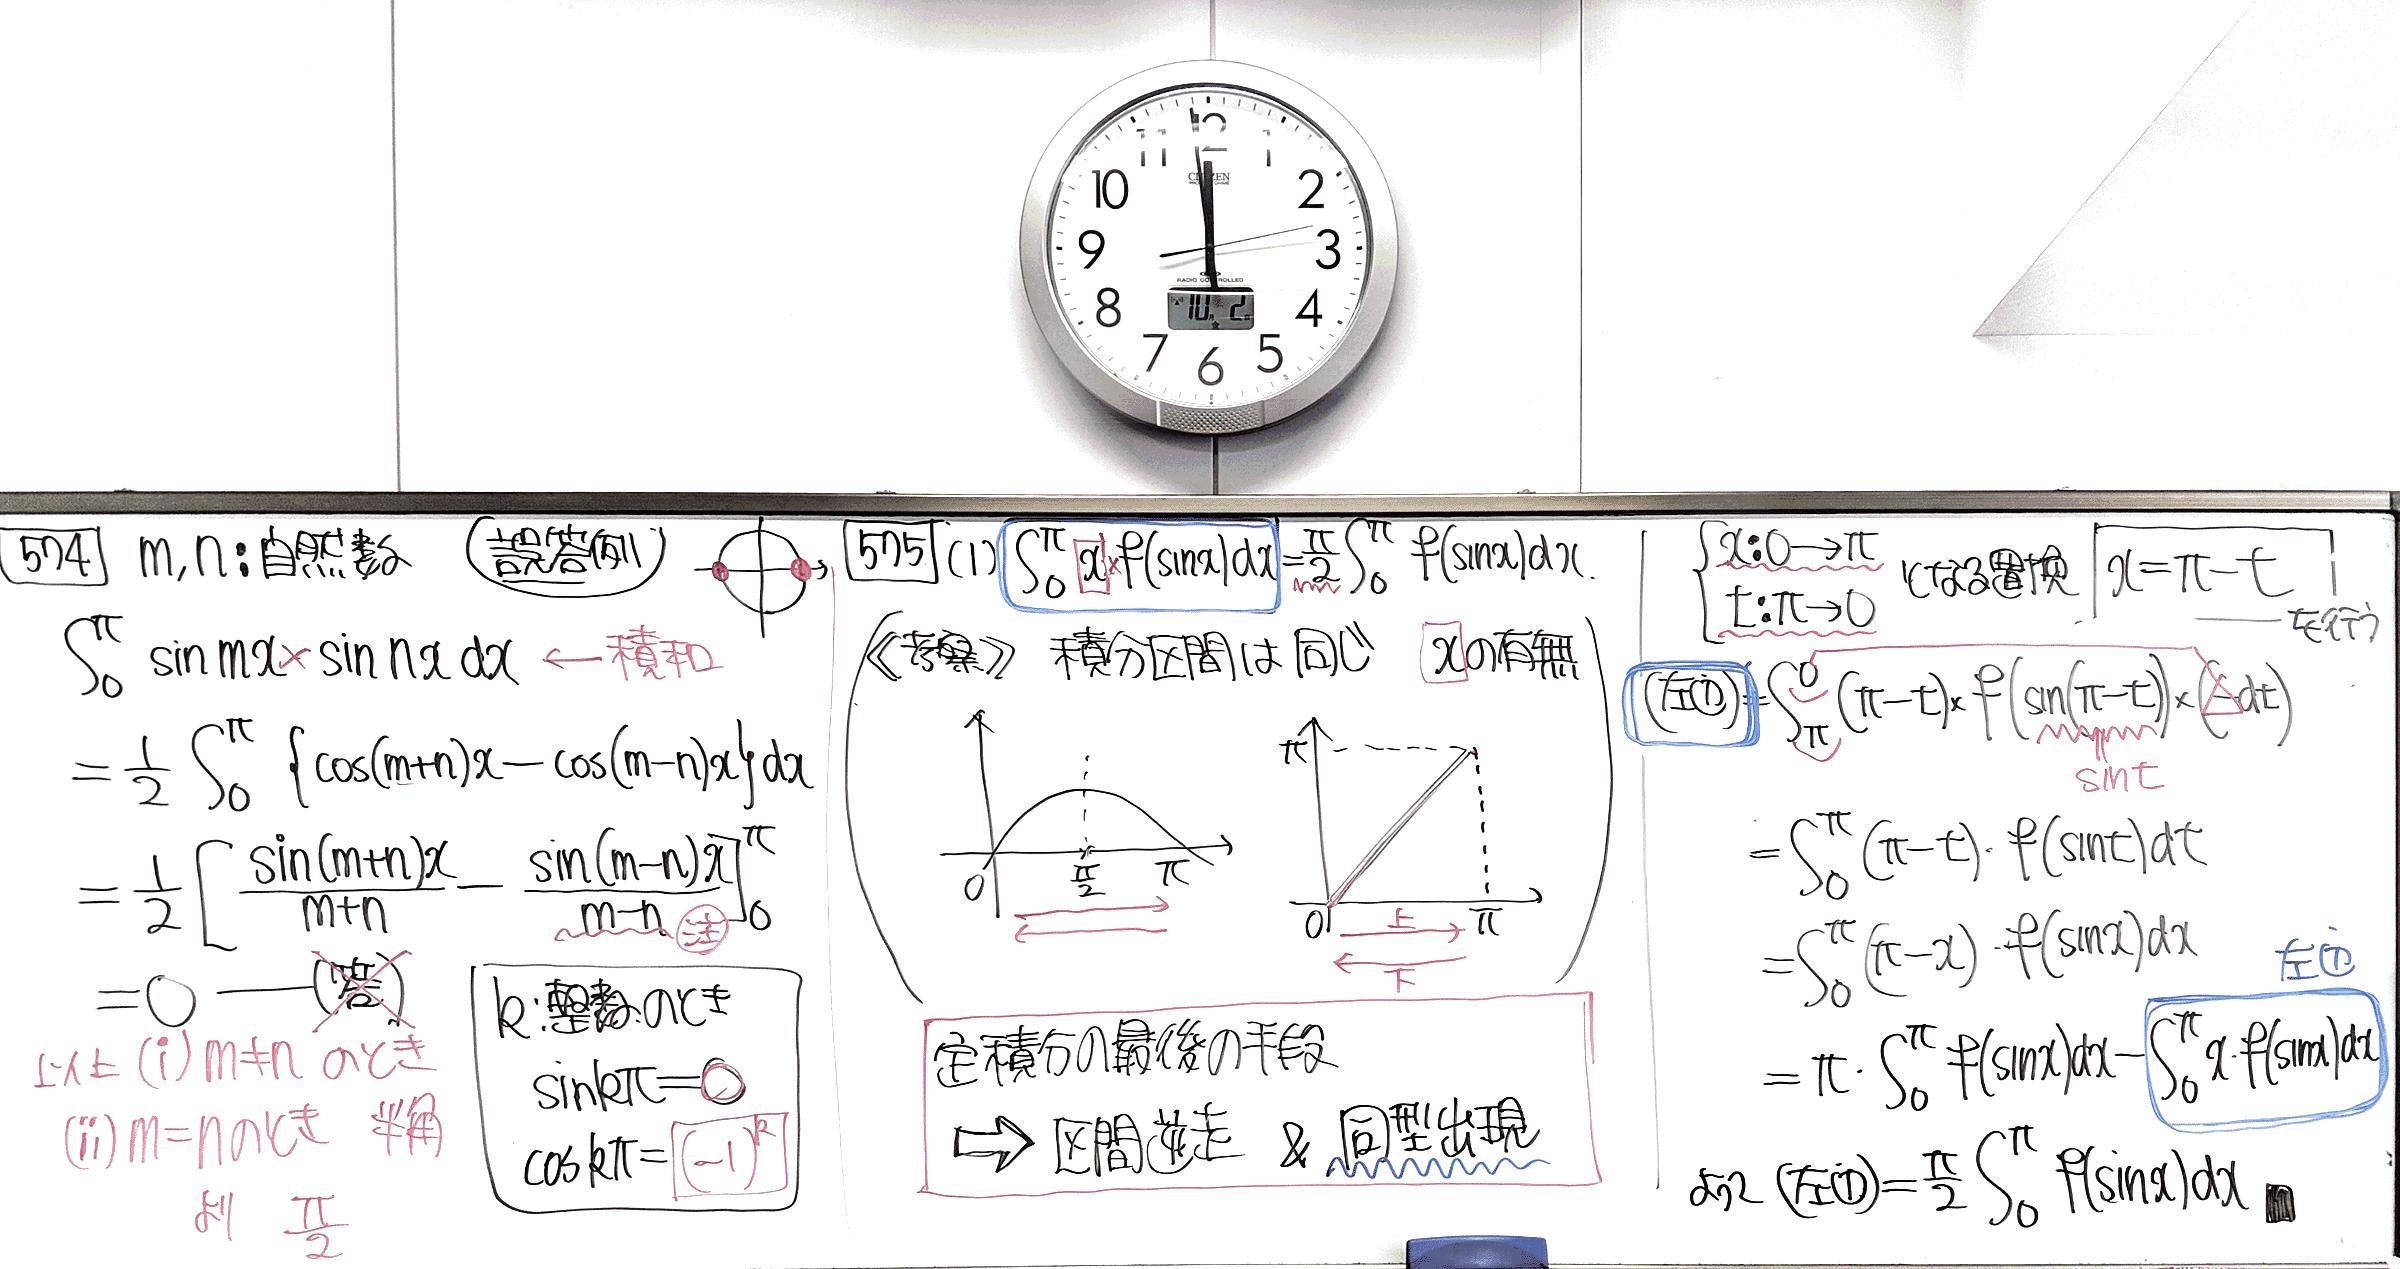 11 12 1
10 2
9 3
8 4
7 6 5
CITIZEN
RADIO CONTROLLED
10月 2日
574 m,n:自然数 (誤答例)
∫₀^π sin mx × sin nx dx ← 積和
= 1/2 ∫₀^π {cos(m+n)x − cos(m−n)x} dx
= 1/2 [ sin(m+n)x/(m+n) − sin(m−n)x/(m−n) ]₀^π 注
= 0 —— (答)
以上 (i) m≠n のとき
(ii) m=n のとき 半角
より π/2
k:整数のとき
sin kπ = 0
cos kπ = (−1)^k
575 (1) ∫₀^π x × f(sin x) dx = π/2 ∫₀^π f(sin x) dx.
《考察》 積分区間は同じ xの有無
0 π/2 π
π
0 π
上
下
定積分の最後の手段
⇨ 区間逆走 & 同型出現
{ x:0→π
t:π→0 となる置換 x=π−t
を行う
(左辺) = ∫_π^0 (π−t) × f(sin(π−t)) × (−dt)
sin t
= ∫₀^π (π−t)・f(sin t) dt
= ∫₀^π (π−x)・f(sin x) dx
左辺
= π・∫₀^π f(sin x) dx − ∫₀^π x・f(sin x) dx
よって (左辺) = π/2 ∫₀^π f(sin x) dx ■